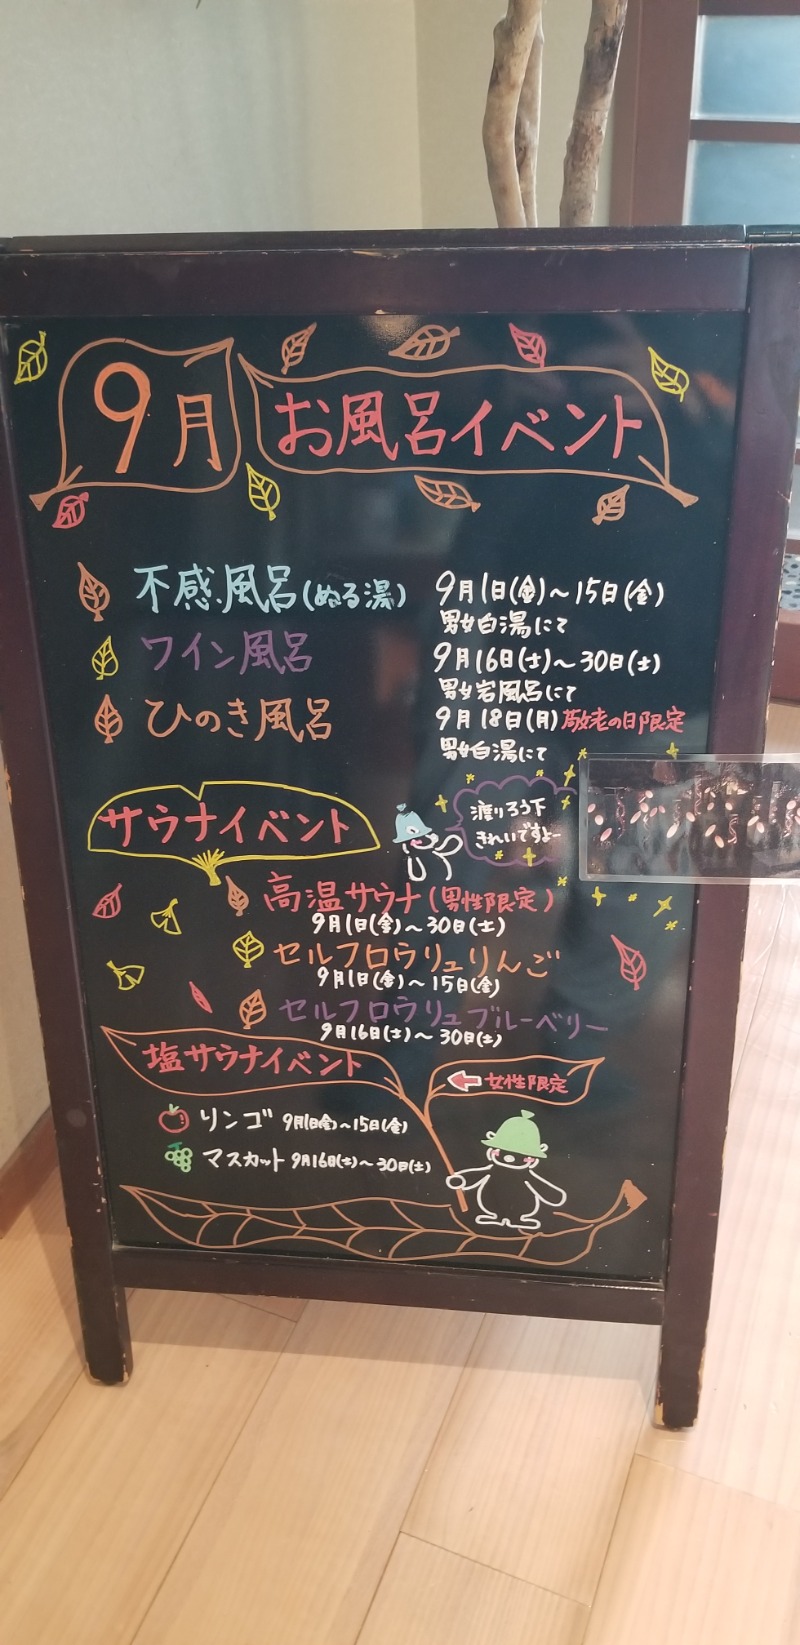 9月 お風呂イベント
不感風呂(ぬる湯) 9月1日(金)～15日(金)
男女白湯にて
ワイン風呂 9月16日(土)～30日(土)
男女岩風呂にて
ひのき風呂 9月18日(月)敬老の日限定
男女白湯にて
サウナイベント
渡りろう下
きれいですよー
高温サウナ(男性限定)
9月1日(金)～30日(土)
セルフロウリュりんご
9月1日(金)～15日(金)
セルフロウリュブルーベリー
9月16日(土)～30日(土)
塩サウナイベント
←女性限定
リンゴ 9月1日(金)～15日(金)
マスカット 9月16日(土)～30日(土)